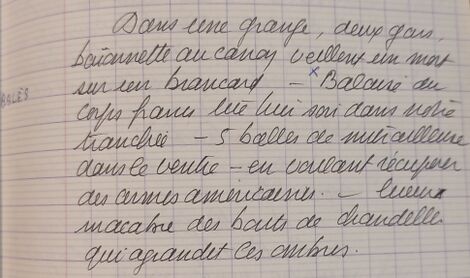 Dans une grange, deux gars,
baïonnette au canon veillent un mort
sur un brancard - x Balaire du
BALES
corps francs tué hier soir dans notre
tranchée - 5 balles de mitrailleuse
dans le ventre - en voulant récupérer
des armes américaines. - lueur
macabre des bouts de chandelle
qui agrandit ces ombres.